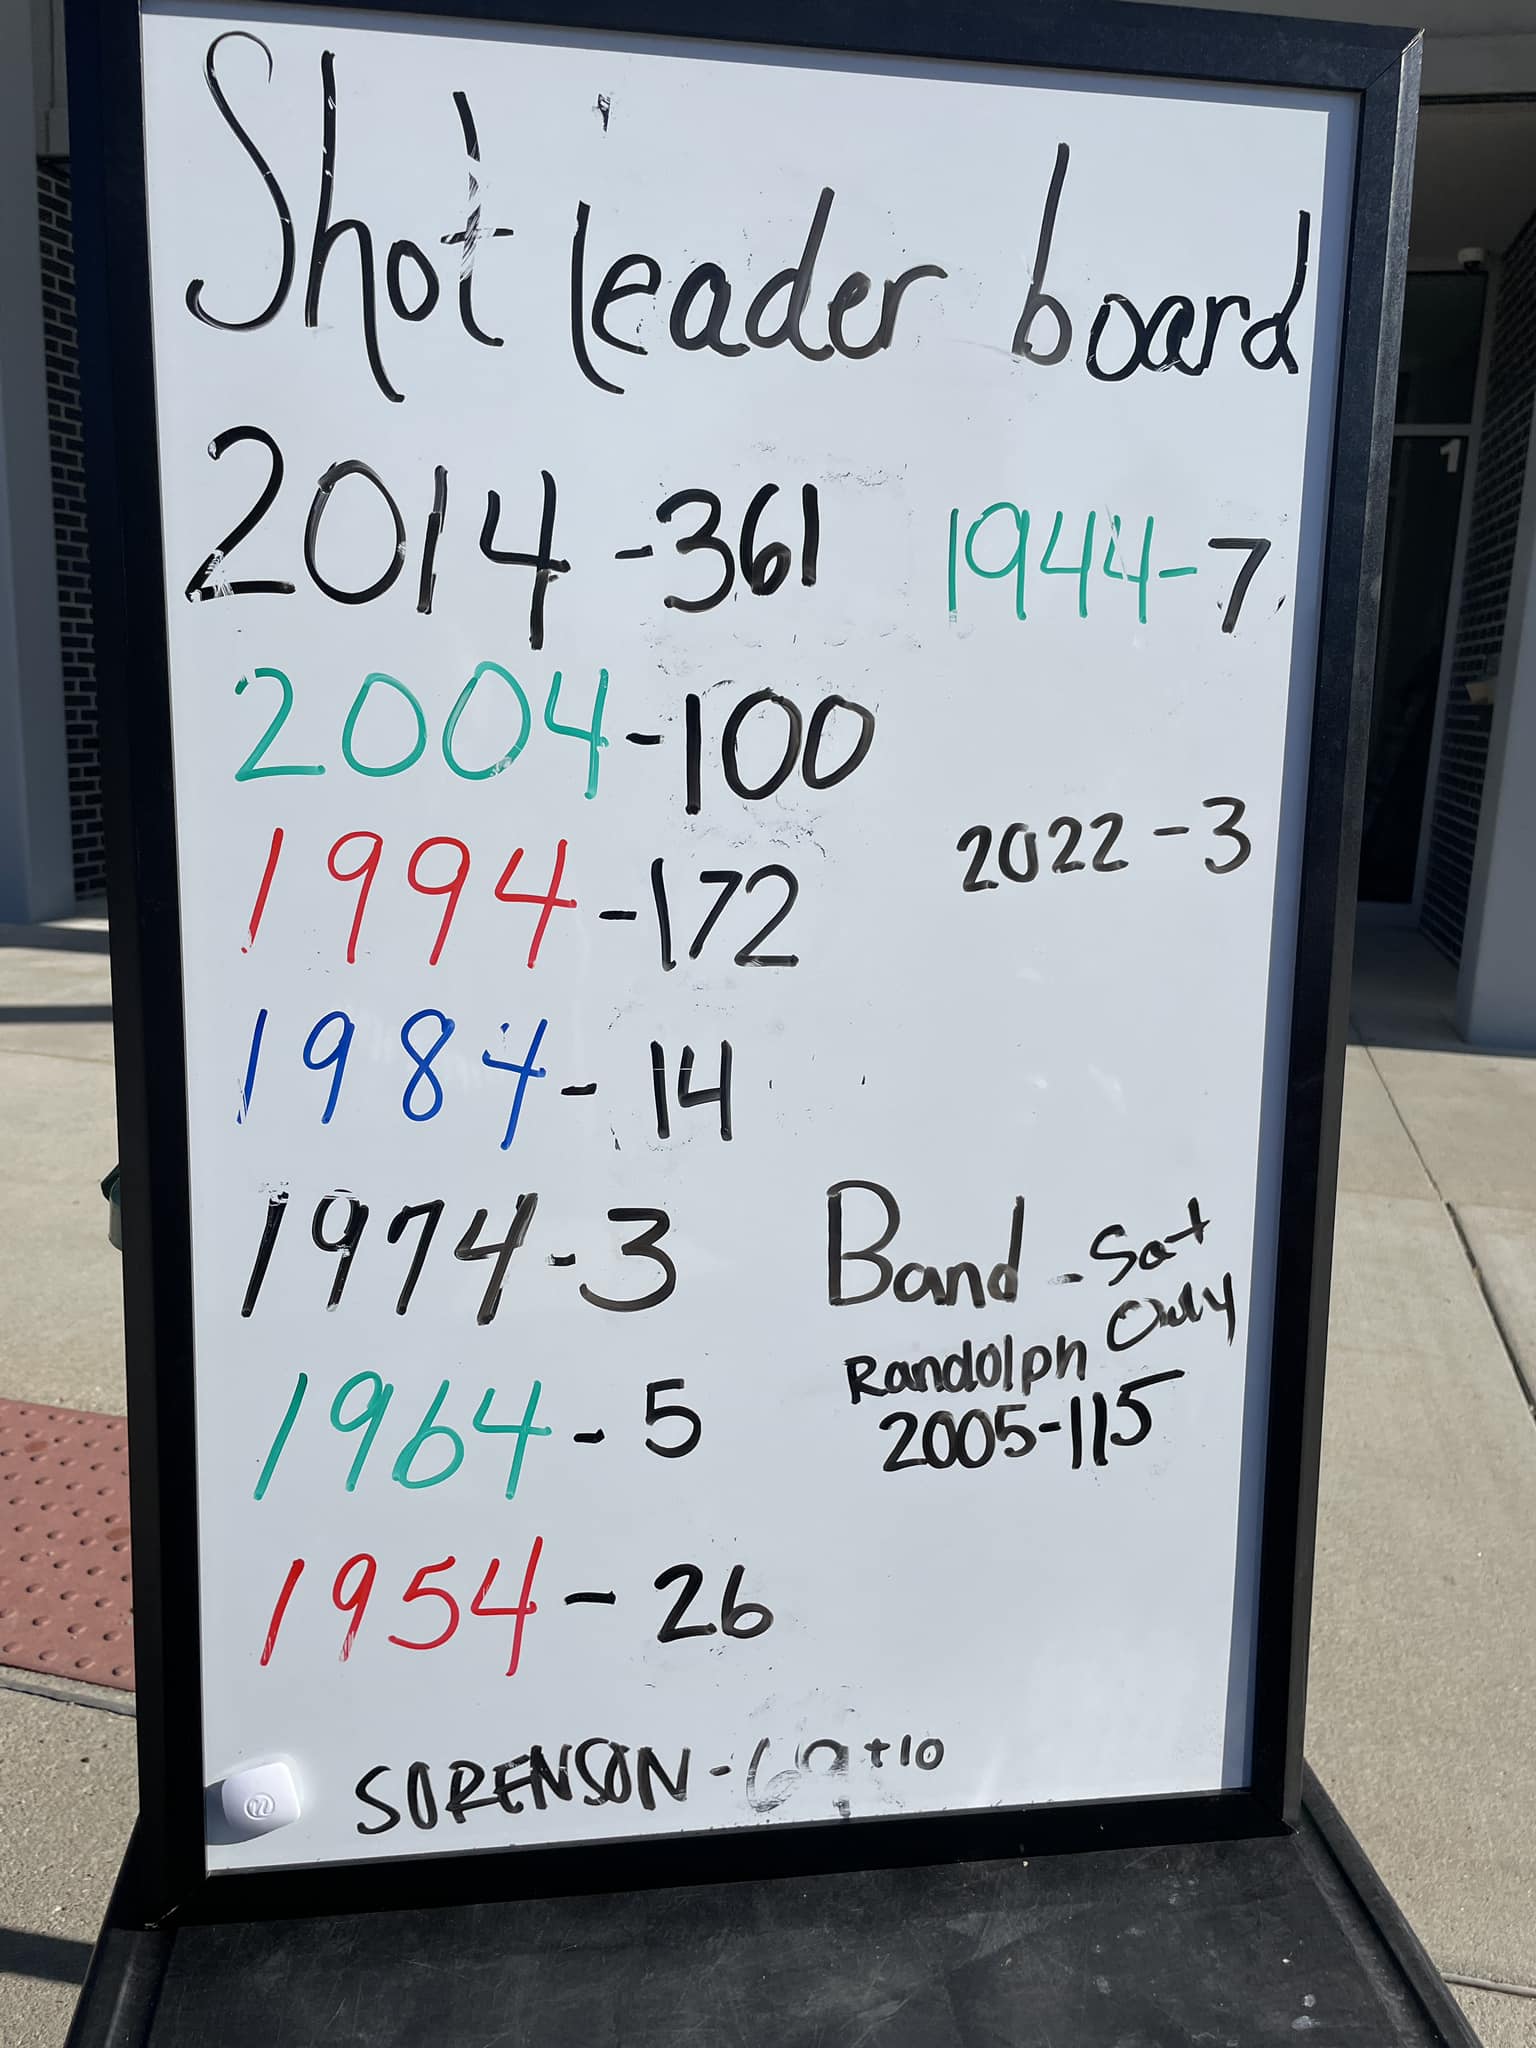 Shot leader board
2014 - 361
2004 - 100
1994 - 172
1984 - 14
1974 - 3
1964 - 5
1954 - 26
1944 - 7
2022 - 3
Band - Sat
Only
Randolph
2005 - 115
SORENSON - 69 +10
1